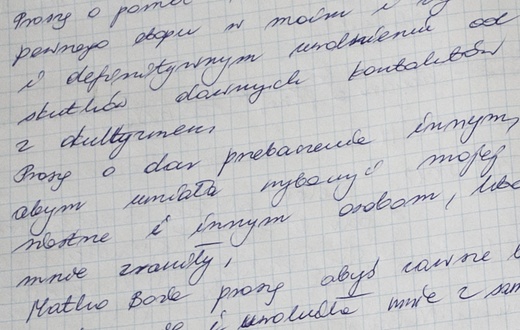 Proszę o pomoc
pewnego etapu w moim i
i definitywnym uwolnieniu od
skutków dawnych kontaktów
z okultyzmem,
Proszę o dar przebaczenia innym,
abym umiała wybaczyć mojej
siostrze i innym osobom,
mnie zraniły,
Matko Boża proszę abyś zawsze
i uwolniła mnie z